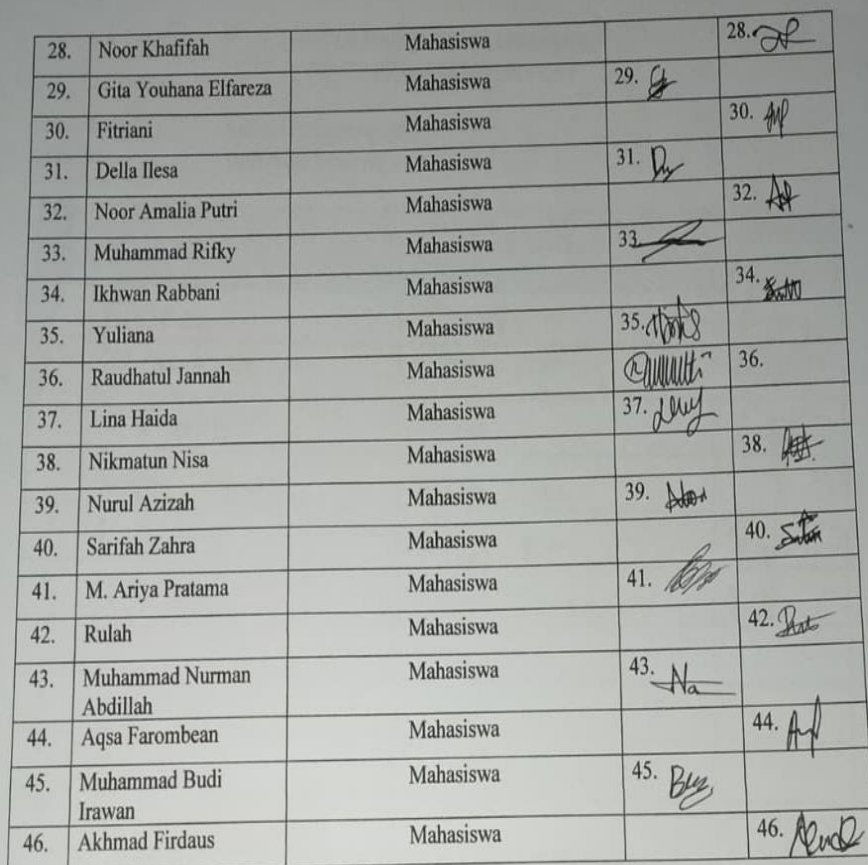 28. Noor Khafifah Mahasiswa 28.
29. Gita Youhana Elfareza Mahasiswa 29.
30. Fitriani Mahasiswa 30.
31. Della Ilesa Mahasiswa 31.
32. Noor Amalia Putri Mahasiswa 32.
33. Muhammad Rifky Mahasiswa 33
34. Ikhwan Rabbani Mahasiswa 34.
35. Yuliana Mahasiswa 35.
36. Raudhatul Jannah Mahasiswa 36.
37. Lina Haida Mahasiswa 37.
38. Nikmatun Nisa Mahasiswa 38.
39. Nurul Azizah Mahasiswa 39.
40. Sarifah Zahra Mahasiswa 40.
41. M. Ariya Pratama Mahasiswa 41.
42. Rulah Mahasiswa 42.
43. Muhammad Nurman Mahasiswa 43. Na
Abdillah
44. Aqsa Farombean Mahasiswa 44.
45. Muhammad Budi Mahasiswa 45.
Irawan
46. Akhmad Firdaus Mahasiswa 46.